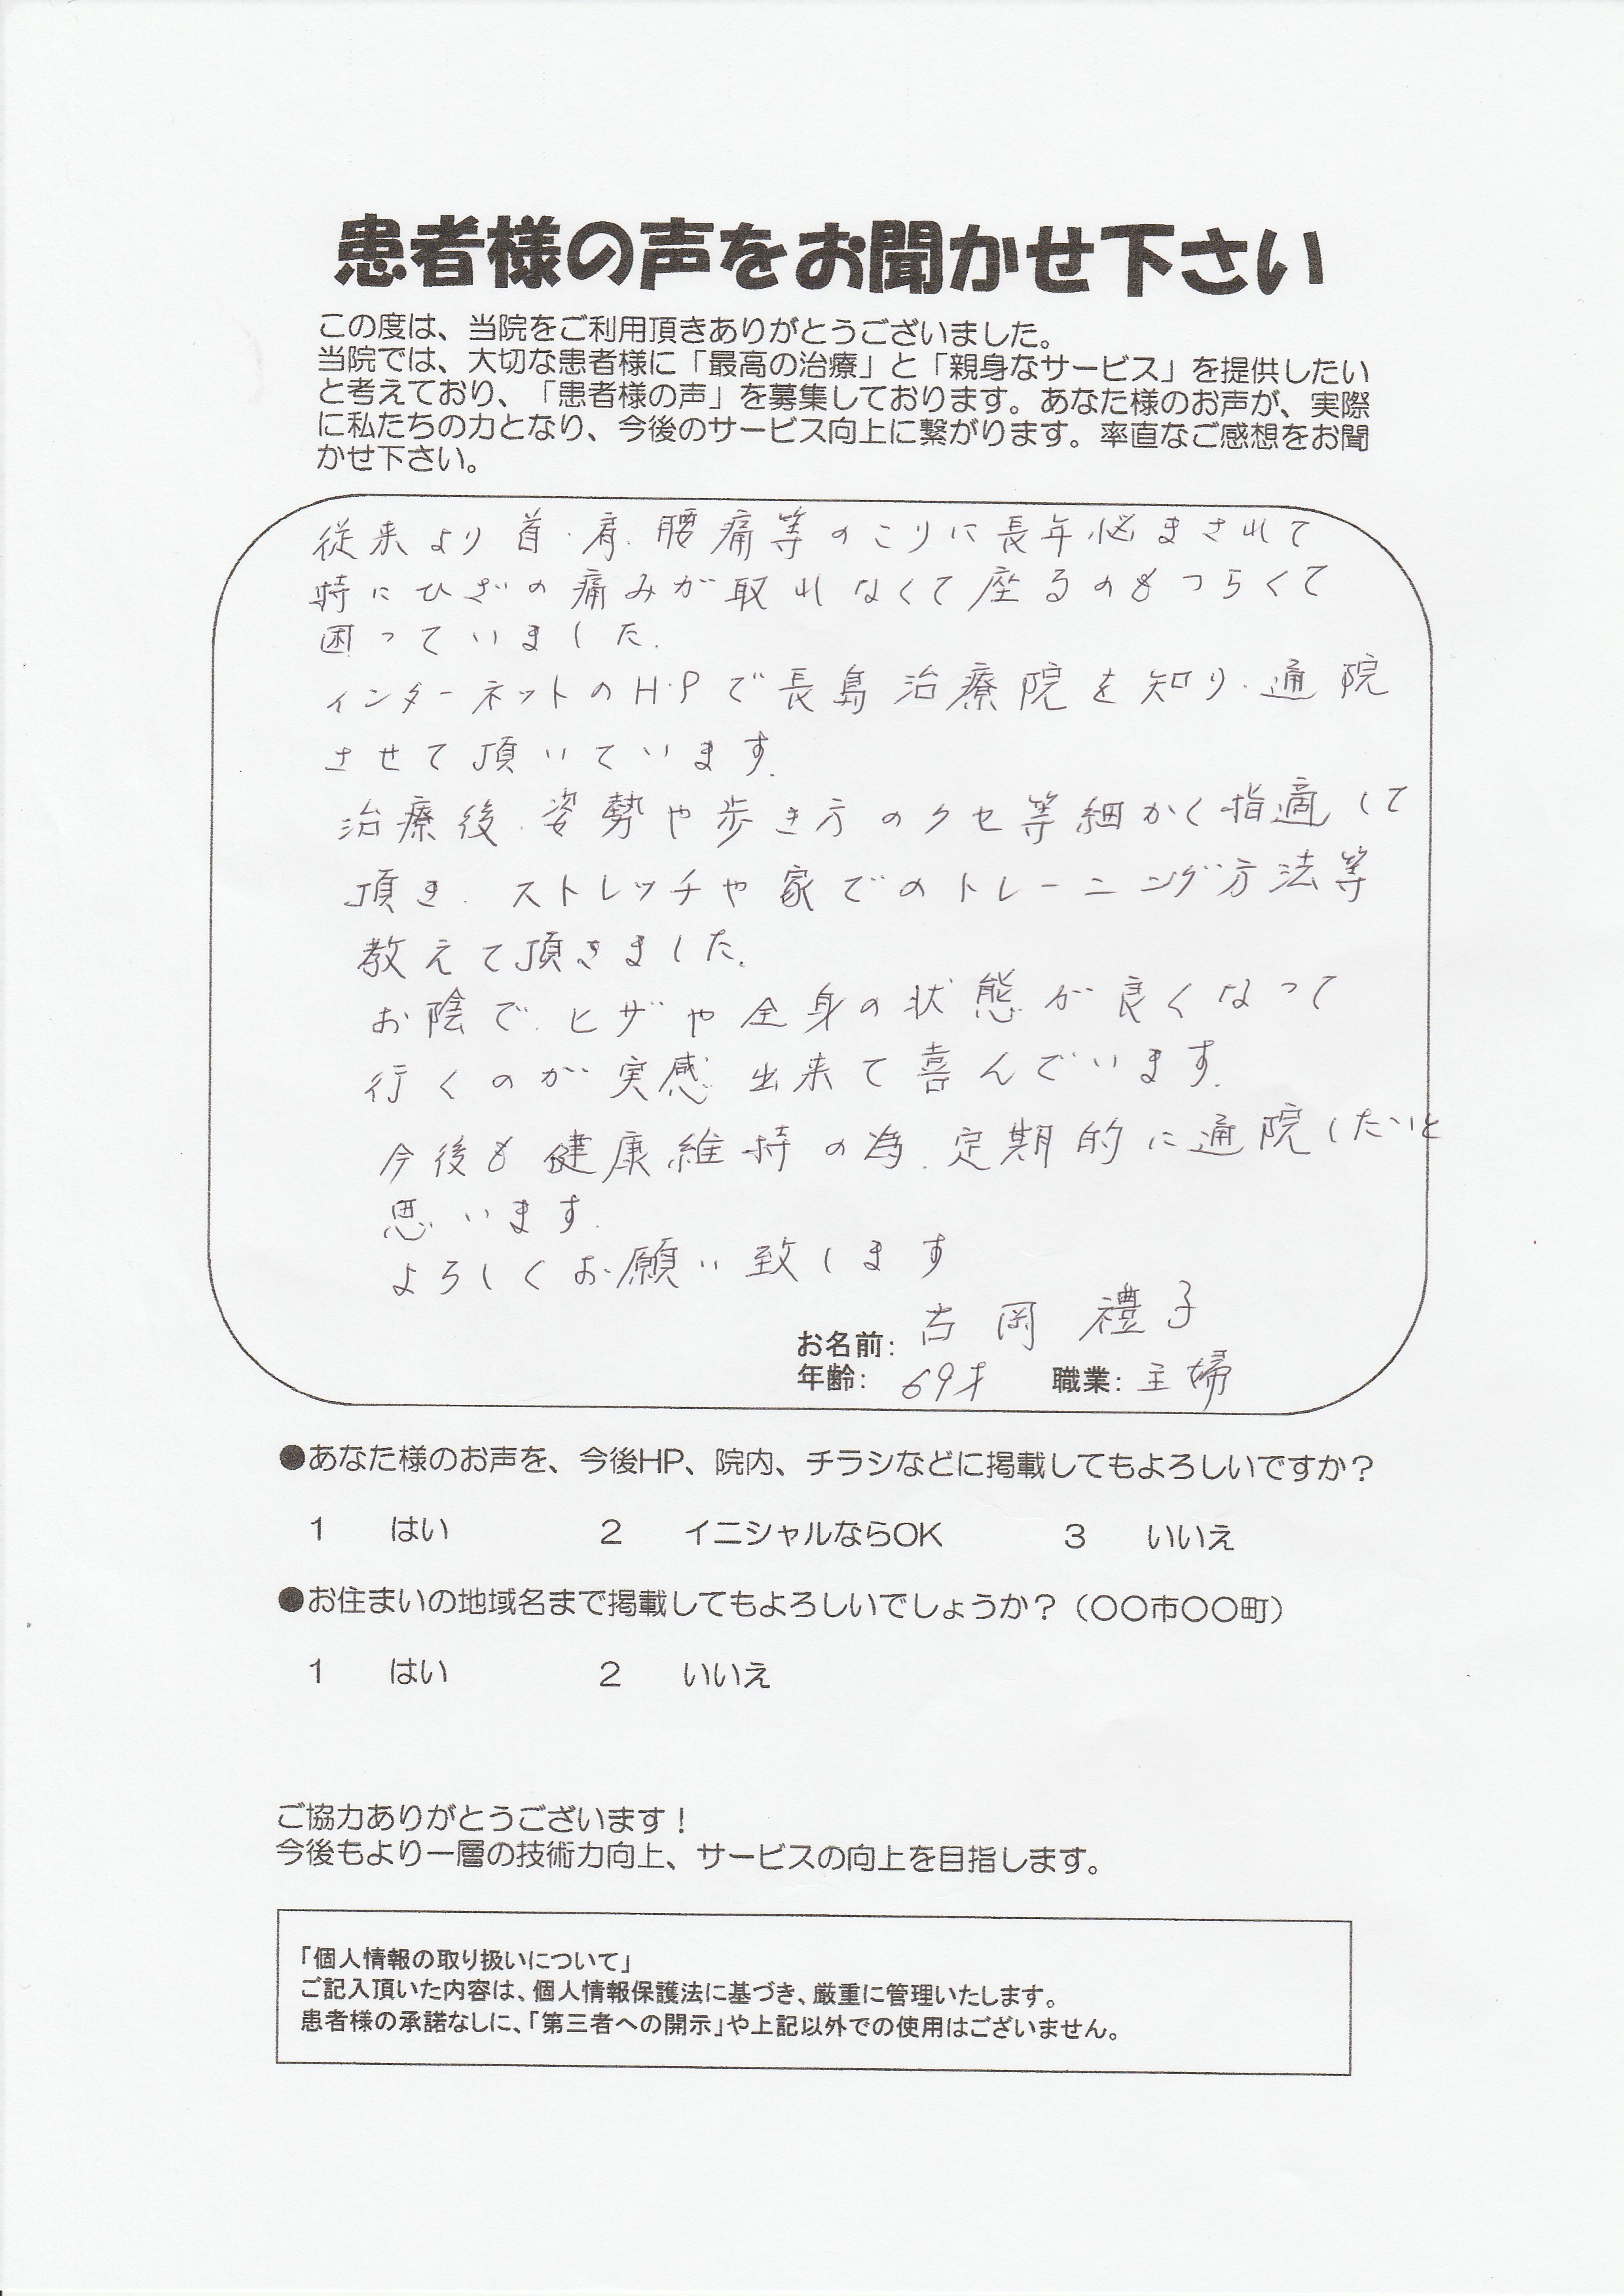 患者様の声をお聞かせ下さい
この度は、当院をご利用頂きありがとうございました。
当院では、大切な患者様に「最高の治療」と「親身なサービス」を提供したい
と考えており、「患者様の声」を募集しております。あなた様のお声が、実際
に私たちの力となり、今後のサービス向上に繋がります。率直なご感想をお聞
かせ下さい。
従来より首.肩.腰痛等のこりに長年悩まされて
特にひざの痛みが取れなくて座るのもつらくて
困っていました.
インターネットのH・Pで長島治療院を知り.通院
させて頂いています.
治療後.姿勢や歩き方のクセ等細かく指適して
頂き.ストレッチや家でのトレーニング方法等
教えて頂きました.
お陰で.ヒザや全身の状態が良くなって
行くのが実感出来て喜んでいます.
今後も健康維持の為.定期的に通院したいと
思います.
よろしくお願い致します
お名前: 吉岡 禮子
年齢: 69才 職業: 主婦
●あなた様のお声を、今後HP、院内、チラシなどに掲載してもよろしいですか？
1 はい 2 イニシャルならOK 3 いいえ
●お住まいの地域名まで掲載してもよろしいでしょうか？（〇〇市〇〇町）
1 はい 2 いいえ
ご協力ありがとうございます！
今後もより一層の技術力向上、サービスの向上を目指します。
「個人情報の取り扱いについて」
ご記入頂いた内容は、個人情報保護法に基づき、厳重に管理いたします。
患者様の承諾なしに、「第三者への開示」や上記以外での使用はございません。